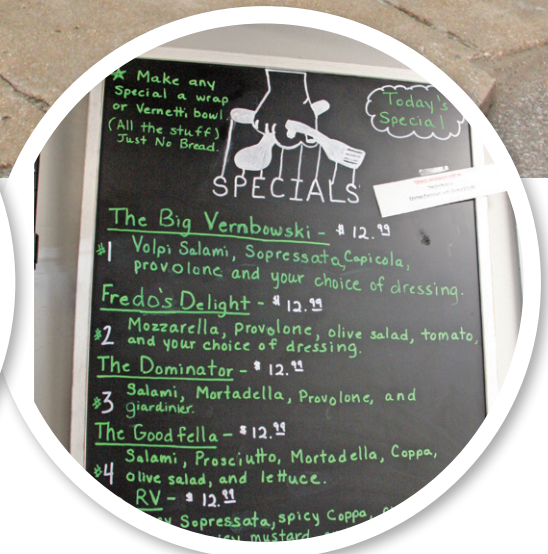 ★ Make any
Special a wrap
or Vernetti bowl.
(All the stuff)
Just No Bread.
Today's
Special
SPECIALS
The Big Vernbowski - $12.99
#1 Volpi Salami, Sopressata, Capicola,
provolone and your choice of dressing.
Fredo's Delight - $12.99
#2 Mozzarella, provolone, olive salad, tomato,
and your choice of dressing.
The Dominator - $12.99
#3 Salami, Mortadella, Provolone, and
giardinier.
The Goodfella - $12.99
#4 Salami, Prosciutto, Mortadella, Coppa,
olive salad, and lettuce.
RV - $12.99
Sopressata, spicy Coppa,
mustard